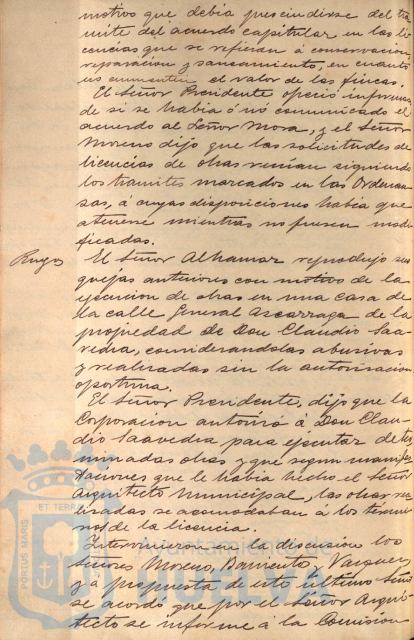 motivo que debia prescindirse del trá
mite del acuerdo capitular en las li
cencias que se refieran á conservacion,
reparación y saneamiento, en cuanto
no aumenten el valor de las fincas.
El Señor Presidente ofreció informar
de si se habia ó nó comunicado el
acuerdo al Señor Mora, y el Señor
Moreno dijo que las solicitudes de
licencias de obras venian siguiendo
los tramites marcados en las Ordenan
zas, á cuyas disposiciones habia que
atenerse mientras no fuesen modi
ficadas.
Ruego
El Señor Alhamar reprodujo sus
quejas anteriores con motivo de la
ejecucion de obras en una casa de
la calle General Azcarraga de la
propiedad de Don Claudio Saa
vedra, considerandolas abusivas
y realizadas sin la autorizacion
oportuna.
El Señor Presidente, dijo que la
Corporacion autorizó á Don Clau
dio Saavedra para ejecutar deter
minadas obras y que segun manifes
taciones que le habia hecho el Señor
Arquitecto Municipal, las obras rea
lizadas se acomodaban á los termi
nos de la licencia.
Intervinieron en la discusion los
señores Moreno, Barrientos, Vazquez,
y á propuesta de este último Señor
se acordó que por el Señor Arqui
tecto se informe á la Comision
PORTUS MARIS ET TERRAE
Ayuntamiento de
HUELVA